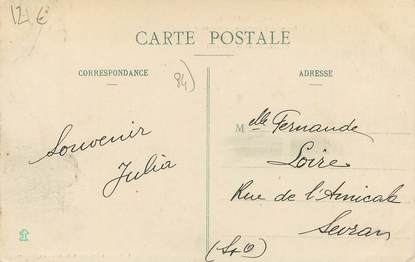 12 €
CARTE POSTALE
CORRESPONDANCE
84)
ADRESSE
Souvenir
Julia
Melle Fernande
Loire
Rue de l'Amicale
Sevran
(S&O)